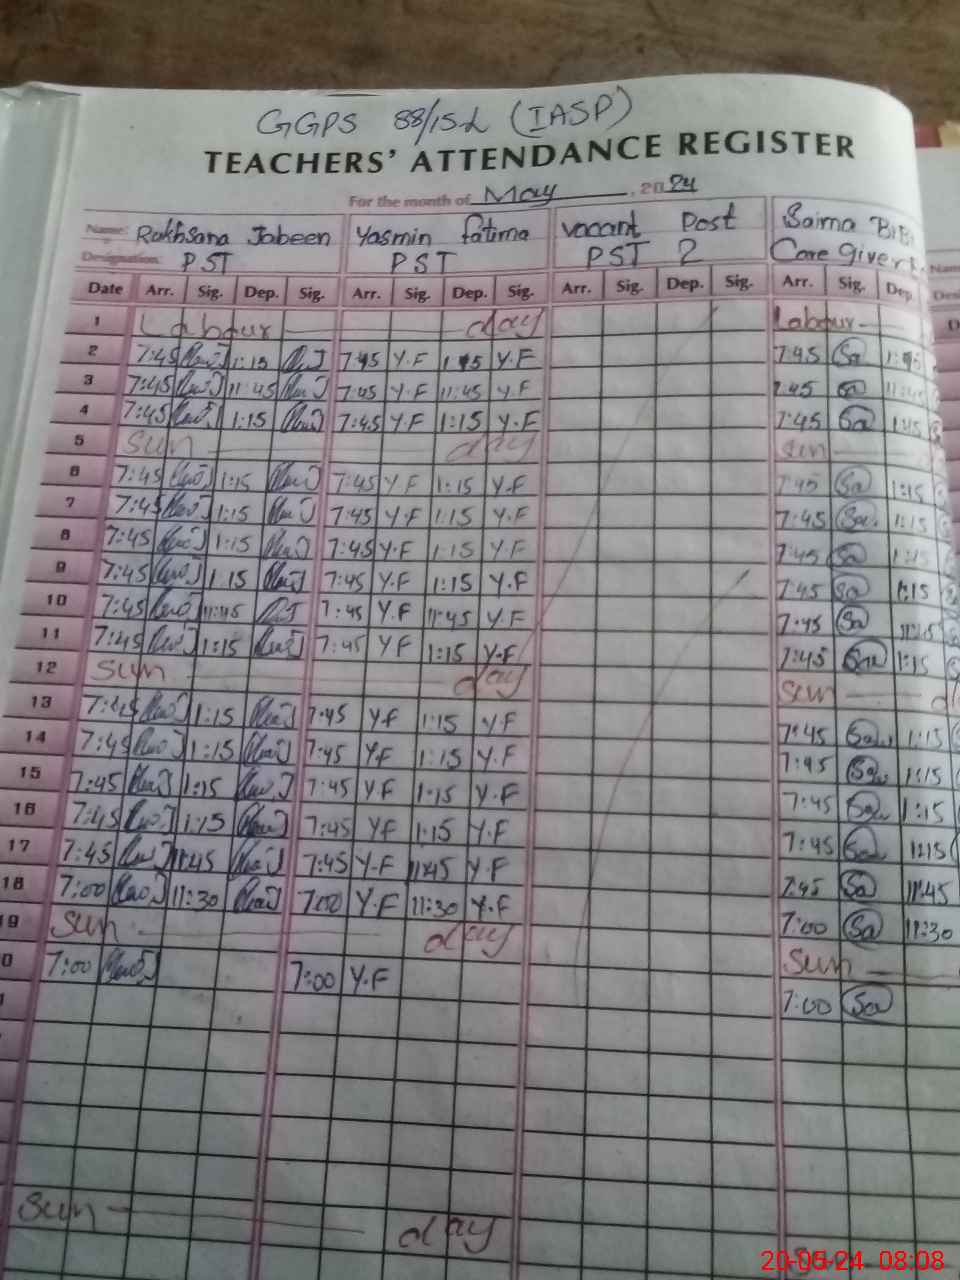 GGPS 88/15.L (IASP)
TEACHERS' ATTENDANCE REGISTER
For the month of May, 2024
Name: Rukhsana Jabeen Yasmin fatima vacant Post Saima BiBi
Designation: PST PST PST 2 Care giver Nam
Date Arr. Sig. Dep. Sig. Arr. Sig. Dep. Sig. Arr. Sig. Dep. Sig. Arr. Sig. Dep.
1 Labour day Labour
2 7:45 1:15 7:45 Y.F 1:15 Y.F 7:45 Sa
3 7:45 11:45 7:45 Y.F 11:45 Y.F 7:45 Sa 11:45
4 7:45 1:15 7:45 Y.F 1:15 Y.F 7:45 Sa 1:15
5 Sun day Sun
6 7:45 1:15 7:45 Y.F 1:15 Y.F 7:45 Sa 1:15
7 7:45 1:15 7:45 Y.F 1:15 Y.F 7:45 Sa 1:15
8 7:45 1:15 7:45 Y.F 1:15 Y.F 7:45 Sa 1:15
9 7:45 1:15 7:45 Y.F 1:15 Y.F 7:45 Sa 1:15
10 7:45 11:45 7:45 Y.F 11:45 Y.F 7:45 Sa 11:45
11 7:45 1:15 7:45 YF 1:15 Y.F 7:45 Sa 1:15
12 Sun day Sun
13 7:45 1:15 7:45 YF 1:15 Y.F 7:45 Sa 1:15
14 7:45 1:15 7:45 YF 1:15 Y.F 7:45 Sa 1:15
15 7:45 1:15 7:45 Y.F 1:15 Y.F 7:45 Sa 1:15
16 7:45 1:15 7:45 YF 1:15 Y.F 7:45 Sa 1:15
17 7:45 11:45 7:45 Y.F 11:45 Y.F 7:45 Sa 11:45
18 7:00 11:30 7:00 Y.F 11:30 Y.F 7:00 Sa 11:30
19 Sun day Sun
0 7:00 7:00 Y.F 7:00 Sa
Sun day
20-05-24 08:08